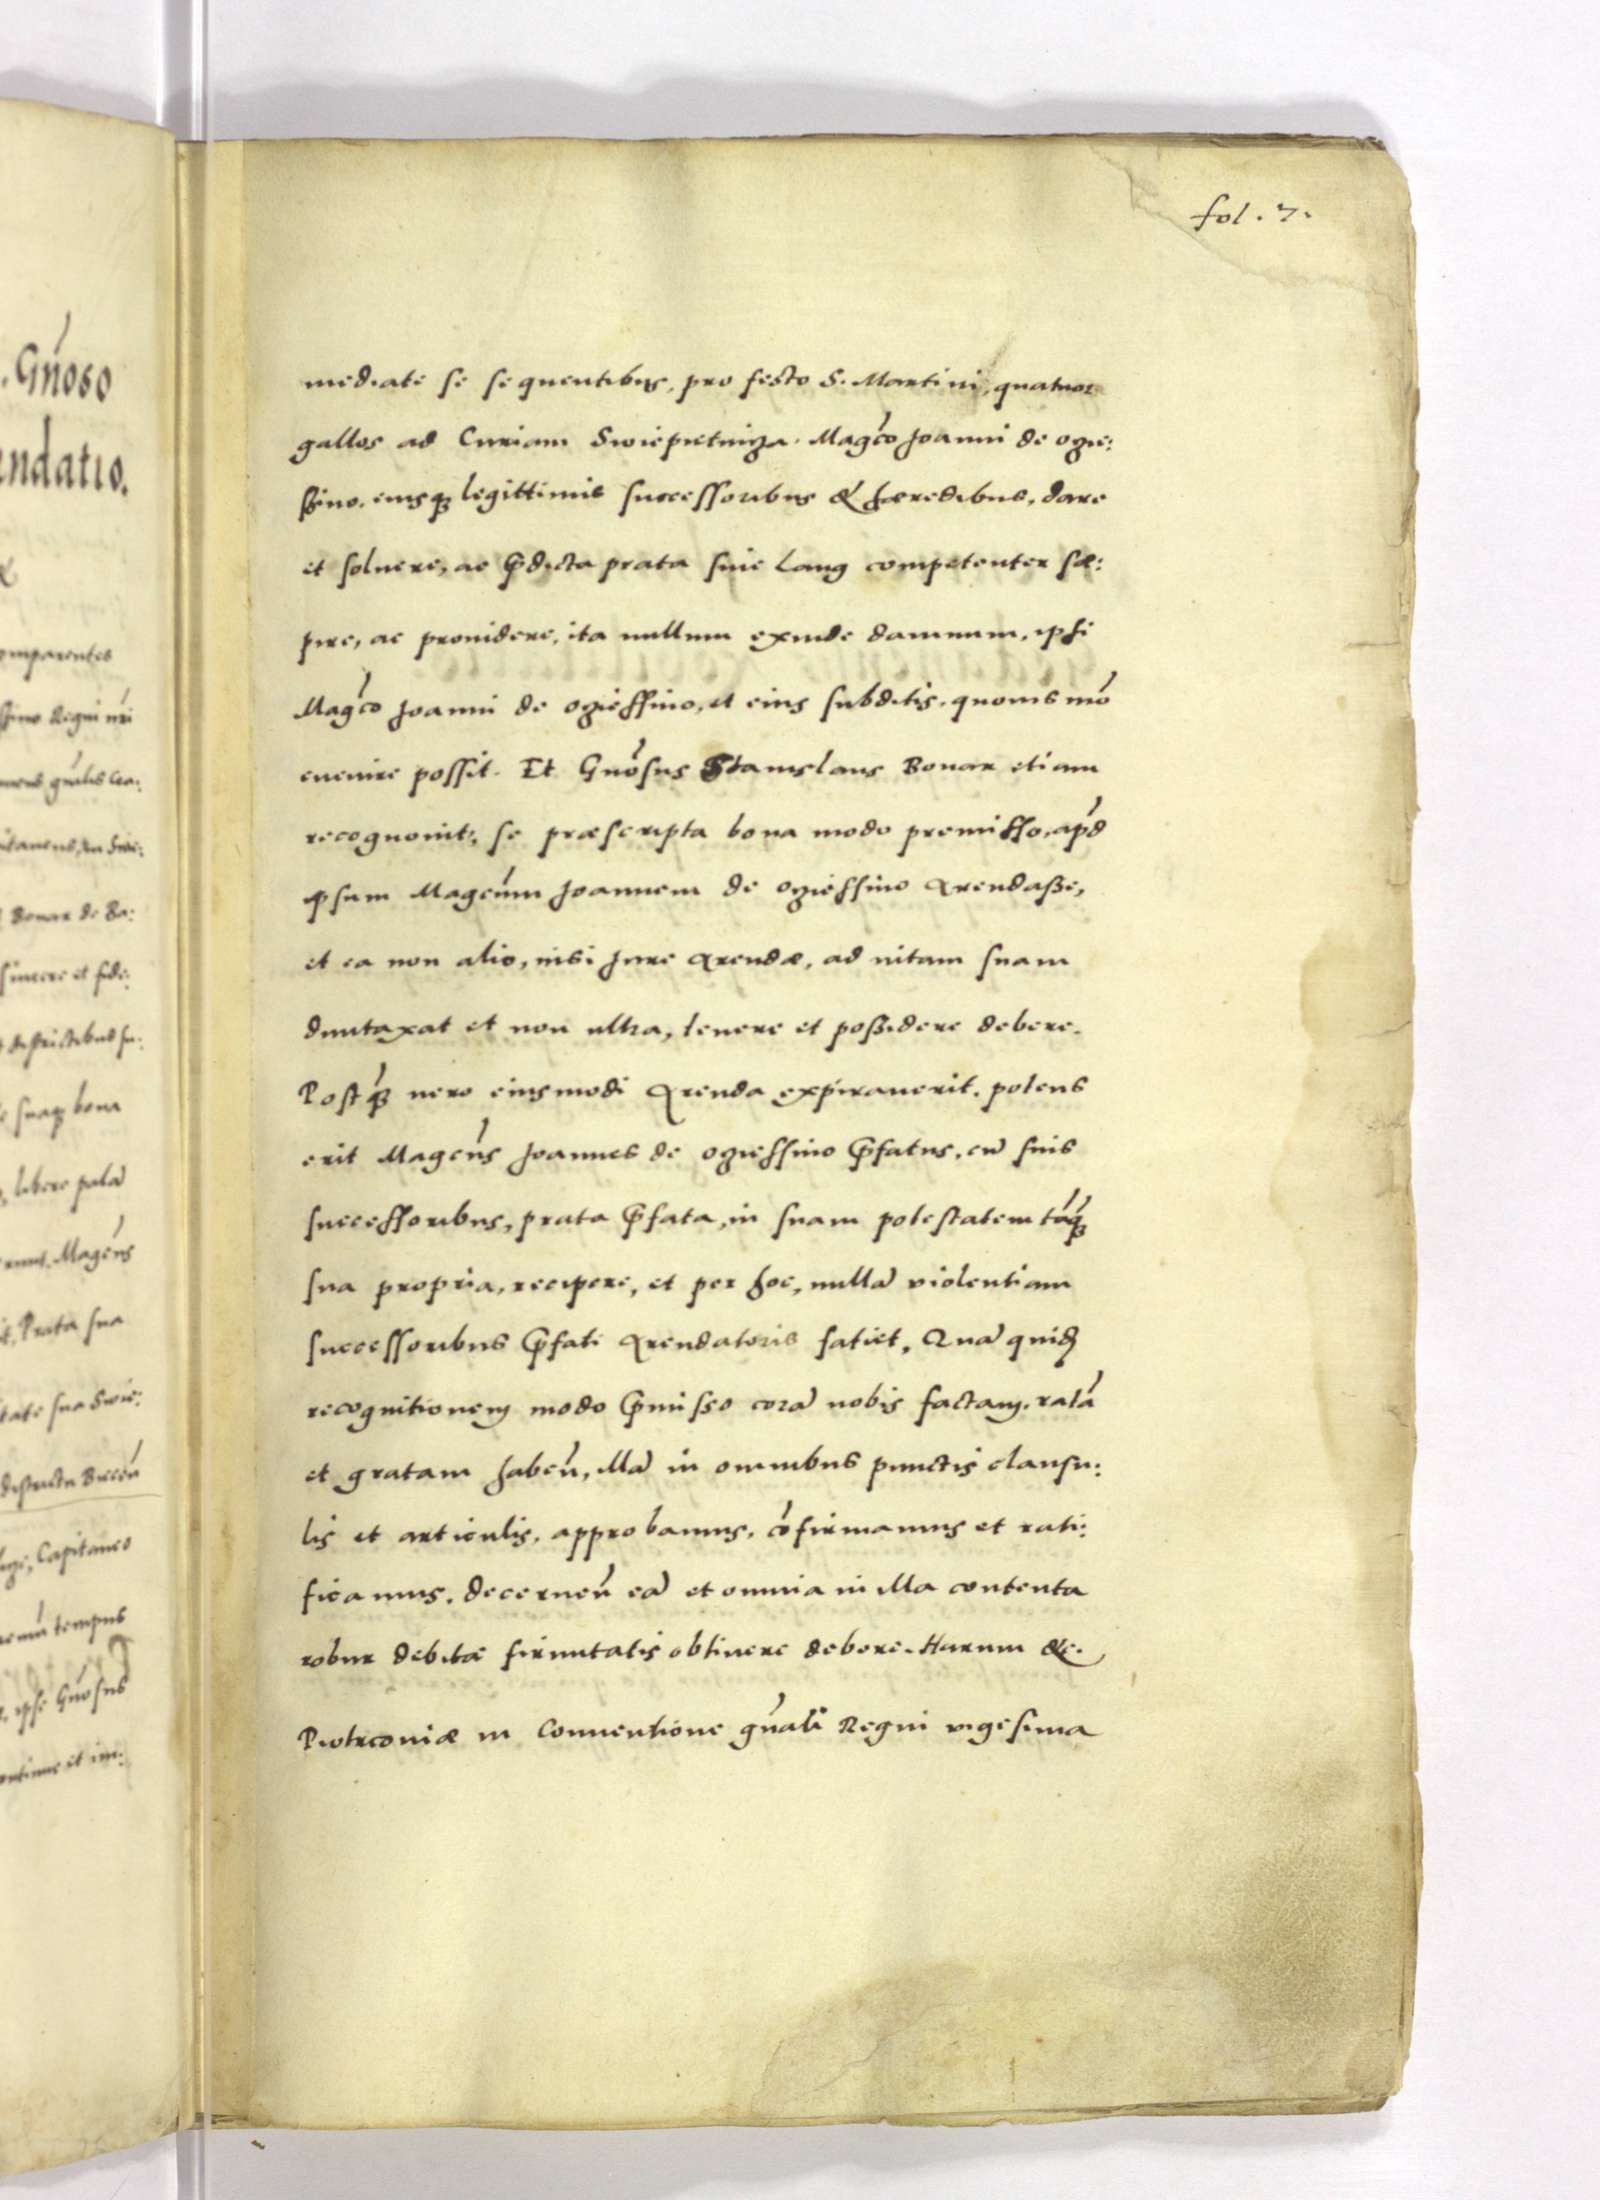 fol. 7.
mediate se sequentibus, pro festo S. Martini, quatuor
gallos ad Curiam Swiepietniza. Magco Joanni de ogie:
ßino, eiusq legittimis successoribus & hæredibus, dare
et soluere, ac prdicta prata siue Lang competenter sæ:
pire, ac prouidere, ita nullum exinde damnum, ipsi
Magco Joanni de ogiessino, et eius subditis, quouis mo
euenire possit. Et Gnosus Stanislaus Bonar etiam
recognouit, se præscripta bona modo premisso, apd
ipsum Magcum Joannem de ogiessino Arendaße,
et ea non alio, nisi Jure Arendæ, ad uitam suam
duntaxat et non ultra, tenere et poßidere debere.
Postq uero eiusmodi Arenda expirauerit, potens
erit Magcus Joannes de ogiessino prfatus, cu suis
successoribus, prata prfata, in suam potestatem taq
sua propria, recipere, et per hoc, nulla violentiam
successoribus prfati Arendatoris fatiet, Qua quid
recognitionem modo prmisso cora nobis factam, rata
et gratam haben, illa in omnibus punctis clausu:
lis et articulis, approbamus, cofirmamus et rati:
ficamus, decernen ea et omnia in illa contenta
robur debitæ firmitatis obtinere debere. Harum &c.
Piotrcouiæ in Conuentione gnali Regni uigesima
. Gnoso
ndatio.
omparentes
ssimo Regni nri
Bonar de Ba:
sincere et fide:
bona
libere pala
Magcus
Prata sua
tate sua Swie:
districtu Biecen
Capitaneo
tempus
ipse Gnosus
continue et im: